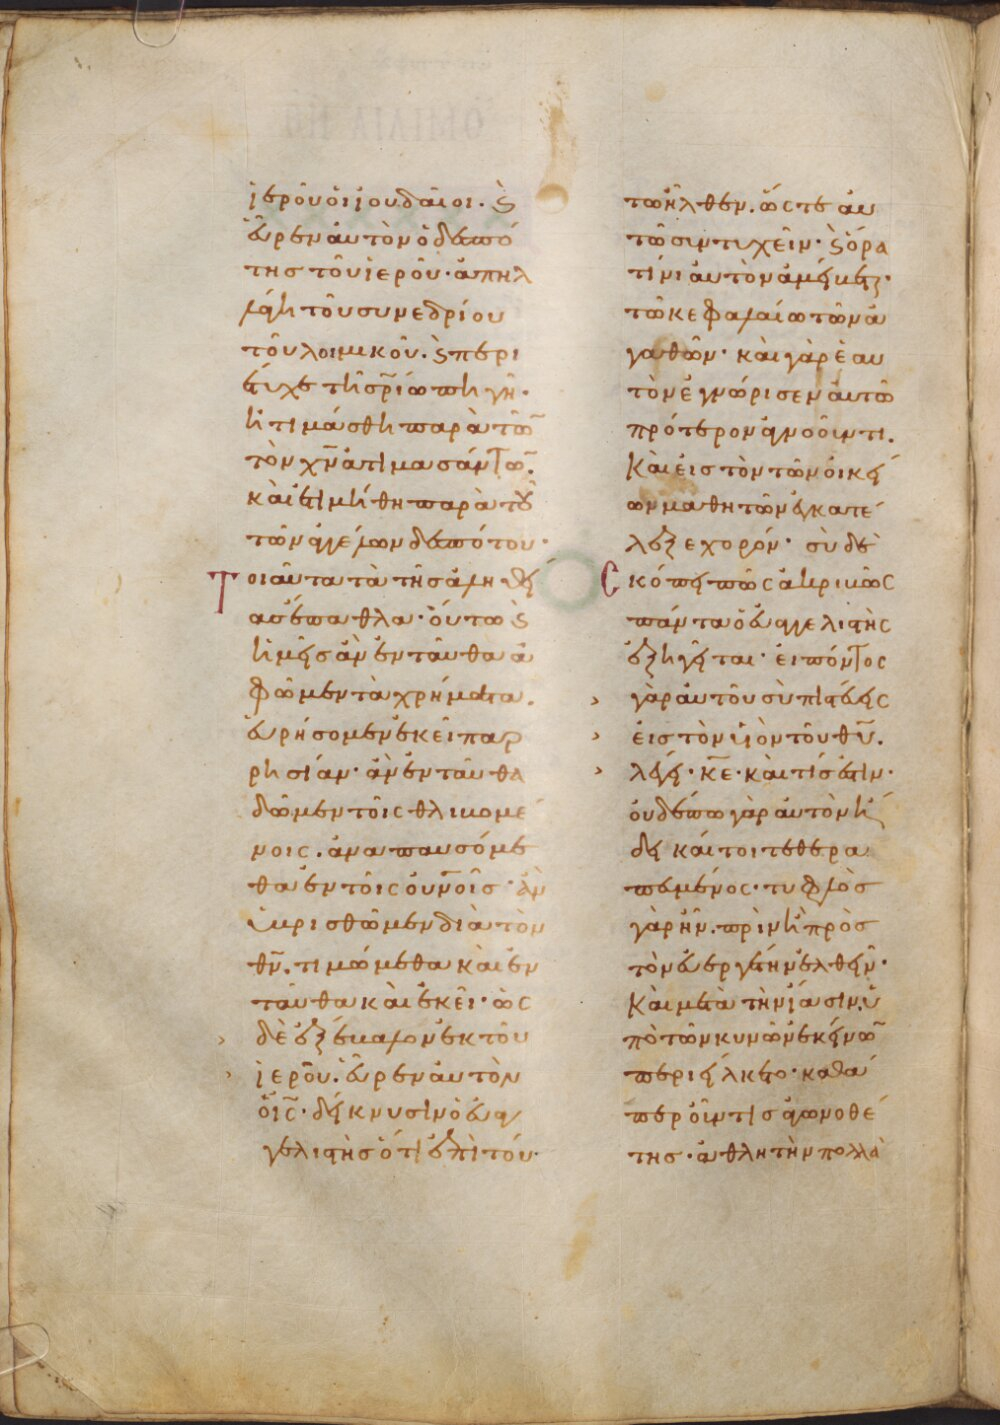 ἱεροῦ οἱ ἰουδαῖοι. ϗ
εὗρεν αὐτὸν ὁ δεσπό
της τοῦ ἱεροῦ· ἀπηλ
λάγη τοῦ συνεδρίου
τοῦ λοιμικοῦ. ϗ περι
έτυχε τῆ σρ̅ιώδη πηγῆ·
ἠτιμάσθη παρὰ τῶ̅
τὸν χν̅ ἀτιμασάντω̅.
καὶ ἐτιμήθη παρὰ τοῦ
τῶν ἀγγέλων δεσπότου·
Τοιαῦτα τὰ τῆς ἀληθεί
ας ἔπαθλα· οὕτω ϗ
ἡμεῖς ἂν ἐνταῦθα ἀ
φῶμεν τὰ χρήματα.
εὑρήσομεν ἐκεῖ παρ
ρησίαν· ἂν ἐνταῦθα
δῶμεν τοῖς θλιβομέ
νοις. ἀναπαυσόμε
θα ἐν τοῖς οὐνοῖς· ἂν
ὑβρισθῶμεν διὰ τὸν
θν̅. τιμώμεθα καὶ ἐν
ταῦθα καὶ ἐκεῖ· ὡς
δὲ ἐξέβαλον ἐκ τοῦ
ἱεροῦ. εὗρεν αὐτὸν
ὁ ις̅· δείκνυσιν ὁ εὐαγ
γελιστὴς ὅτι ἐπὶ τού
τω ἦλθεν. ὥστε αὐ
τῶ συντυχεῖν· ϗ ὅρα
τίνι αὐτὸν ἀμείβεται·
τῶ κεφαλαίω τῶν ἀ
γαθῶν· καὶ γὰρ ἑαυ
τὸν ἐγνώρισεν αὐτῶ
πρότερον ἀγνοοῦντι.
Καὶ εἰς τὸν τῶν οἰκεί
ων μαθητῶν ἐγκατέ
λεξε χορόν· σὺ δὲ
Σκόπει πῶς ἀκριβῶς
πάντα ὁ εὐαγγελιστὴς
ἐξηγεῖται· εἰπόντος
γὰρ αὐτοῦ σὺ πιστεύεις
εἰς τὸν υἱὸν τοῦ θυ̅.
λέγει· κε̅· καὶ τίς ἐστιν·
οὐδέπω γὰρ αὐτὸν ἤ
δει καίτοι τεθερα
πευμένος· τυφλὸς
γὰρ ἦν. πρὶν ἢ πρὸς
τὸν εὐεργέτην ἐλθεῖν·
Καὶ μετὰ τὴν ἴασιν, ὑ
πὸ τῶν κυνῶν ἐκείνω̅
περιείλκετο· καθά
περ οὖν τις ἀγωνοθέ
της· ἀθλητὴν πολλὰ